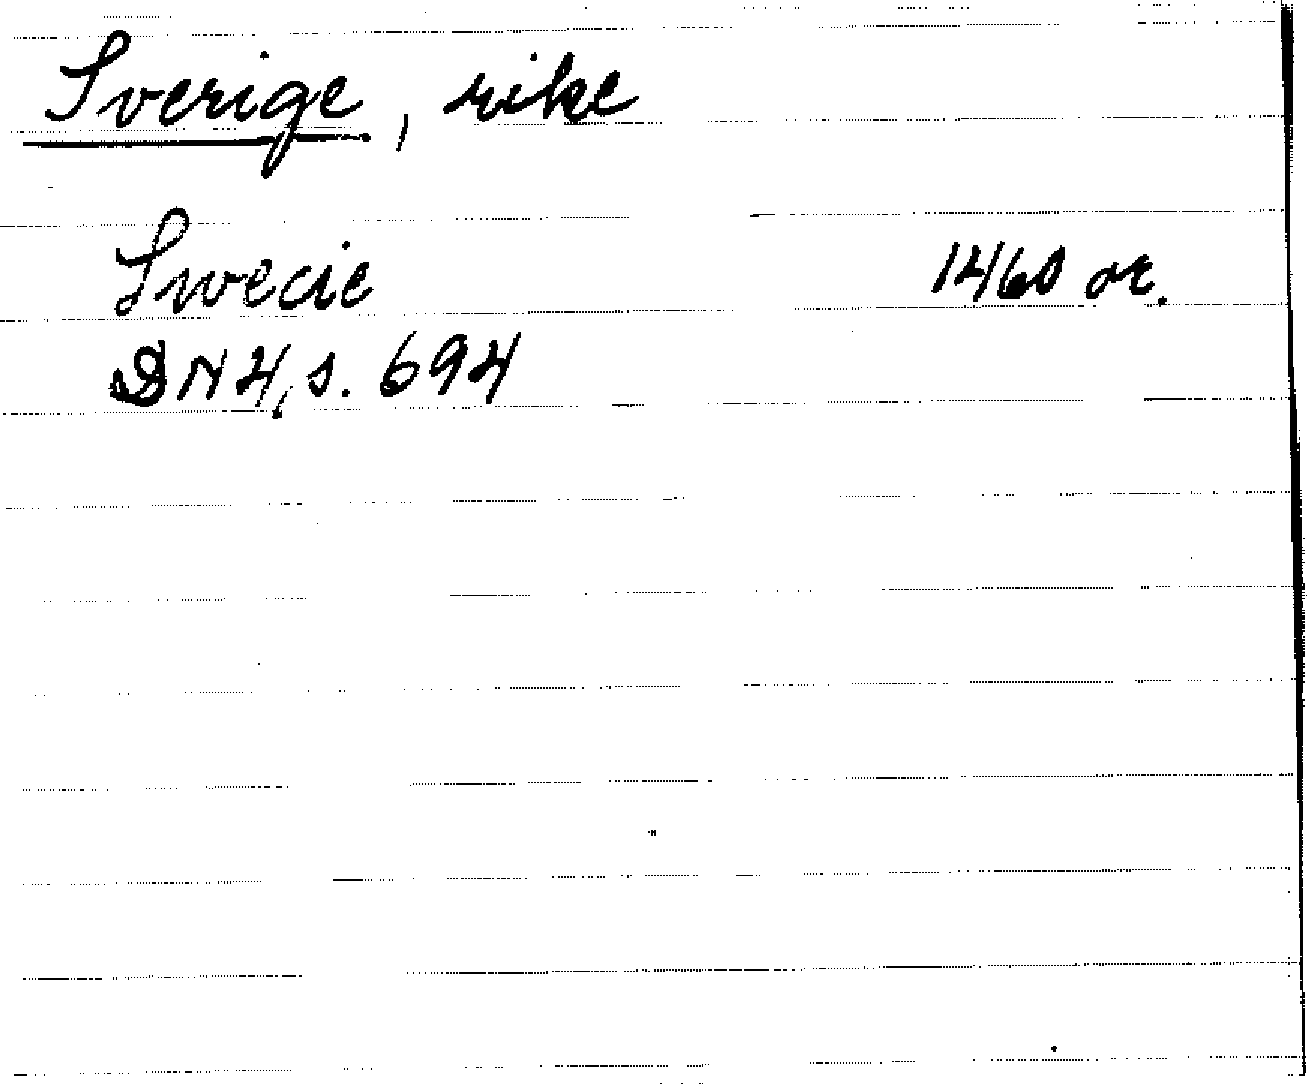 Sverige, rike
Swecie 1460 or.
DN 4, s. 694